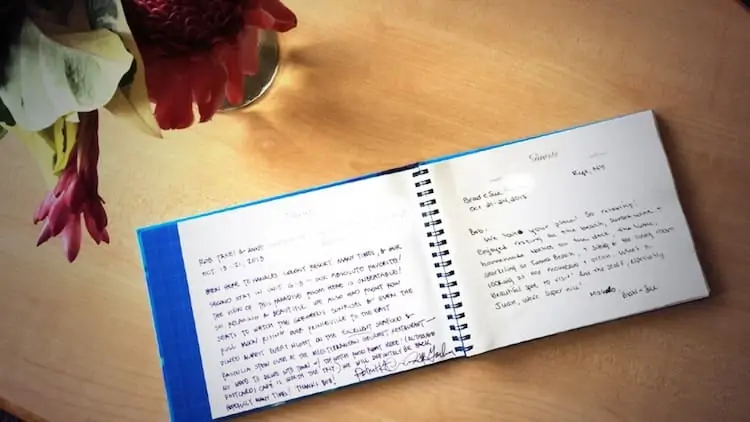 OCT. 13 - 21, 2013
BEEN HERE TO HANALEI COLONY RESORT MANY TIMES, & OUR
SECOND STAY IN UNIT G-13 - OUR ABSOLUTE FAVORITE!
THE VIEW OF THIS PARADISE FROM HERE IS UNBEATABLE!
SO RELAXING & BEAUTIFUL. WE ALSO HAD FRONT ROW
SEATS TO WATCH THE GORGEOUS SUNRISES & EVEN THE
FULL MOON RISING OVER PRINCEVILLE TO THE EAST.
DINED ALMOST EVERY NIGHT ON THE EXCELLENT SEAFOOD &
PAELLA OVER AT THE MEDITERRANEAN GOURMET RESTAURANT -
NO NEED TO DRIVE INTO TOWN W/ FOOD RIGHT HERE! (ALTHOUGH
POSTCARDS CAFE IS WORTH THE TRIP) WE WILL DEFINITELY BE BACK
HOPEFULLY MANY TIMES! THANKS BOB!
Brad & Sue
Rye, NY
Oct 21-24, 2013
Bob,
We loved your place! So relaxing!
Enjoyed relaxing on the beach, sunset wine &
the home,
snorkeling at Tunnels Beach, & sitting in the living room
looking at the mountains & ocean. What a
beautiful spot to visit! And the staff, especially
were super nice! Mahalo, Brad & Sue